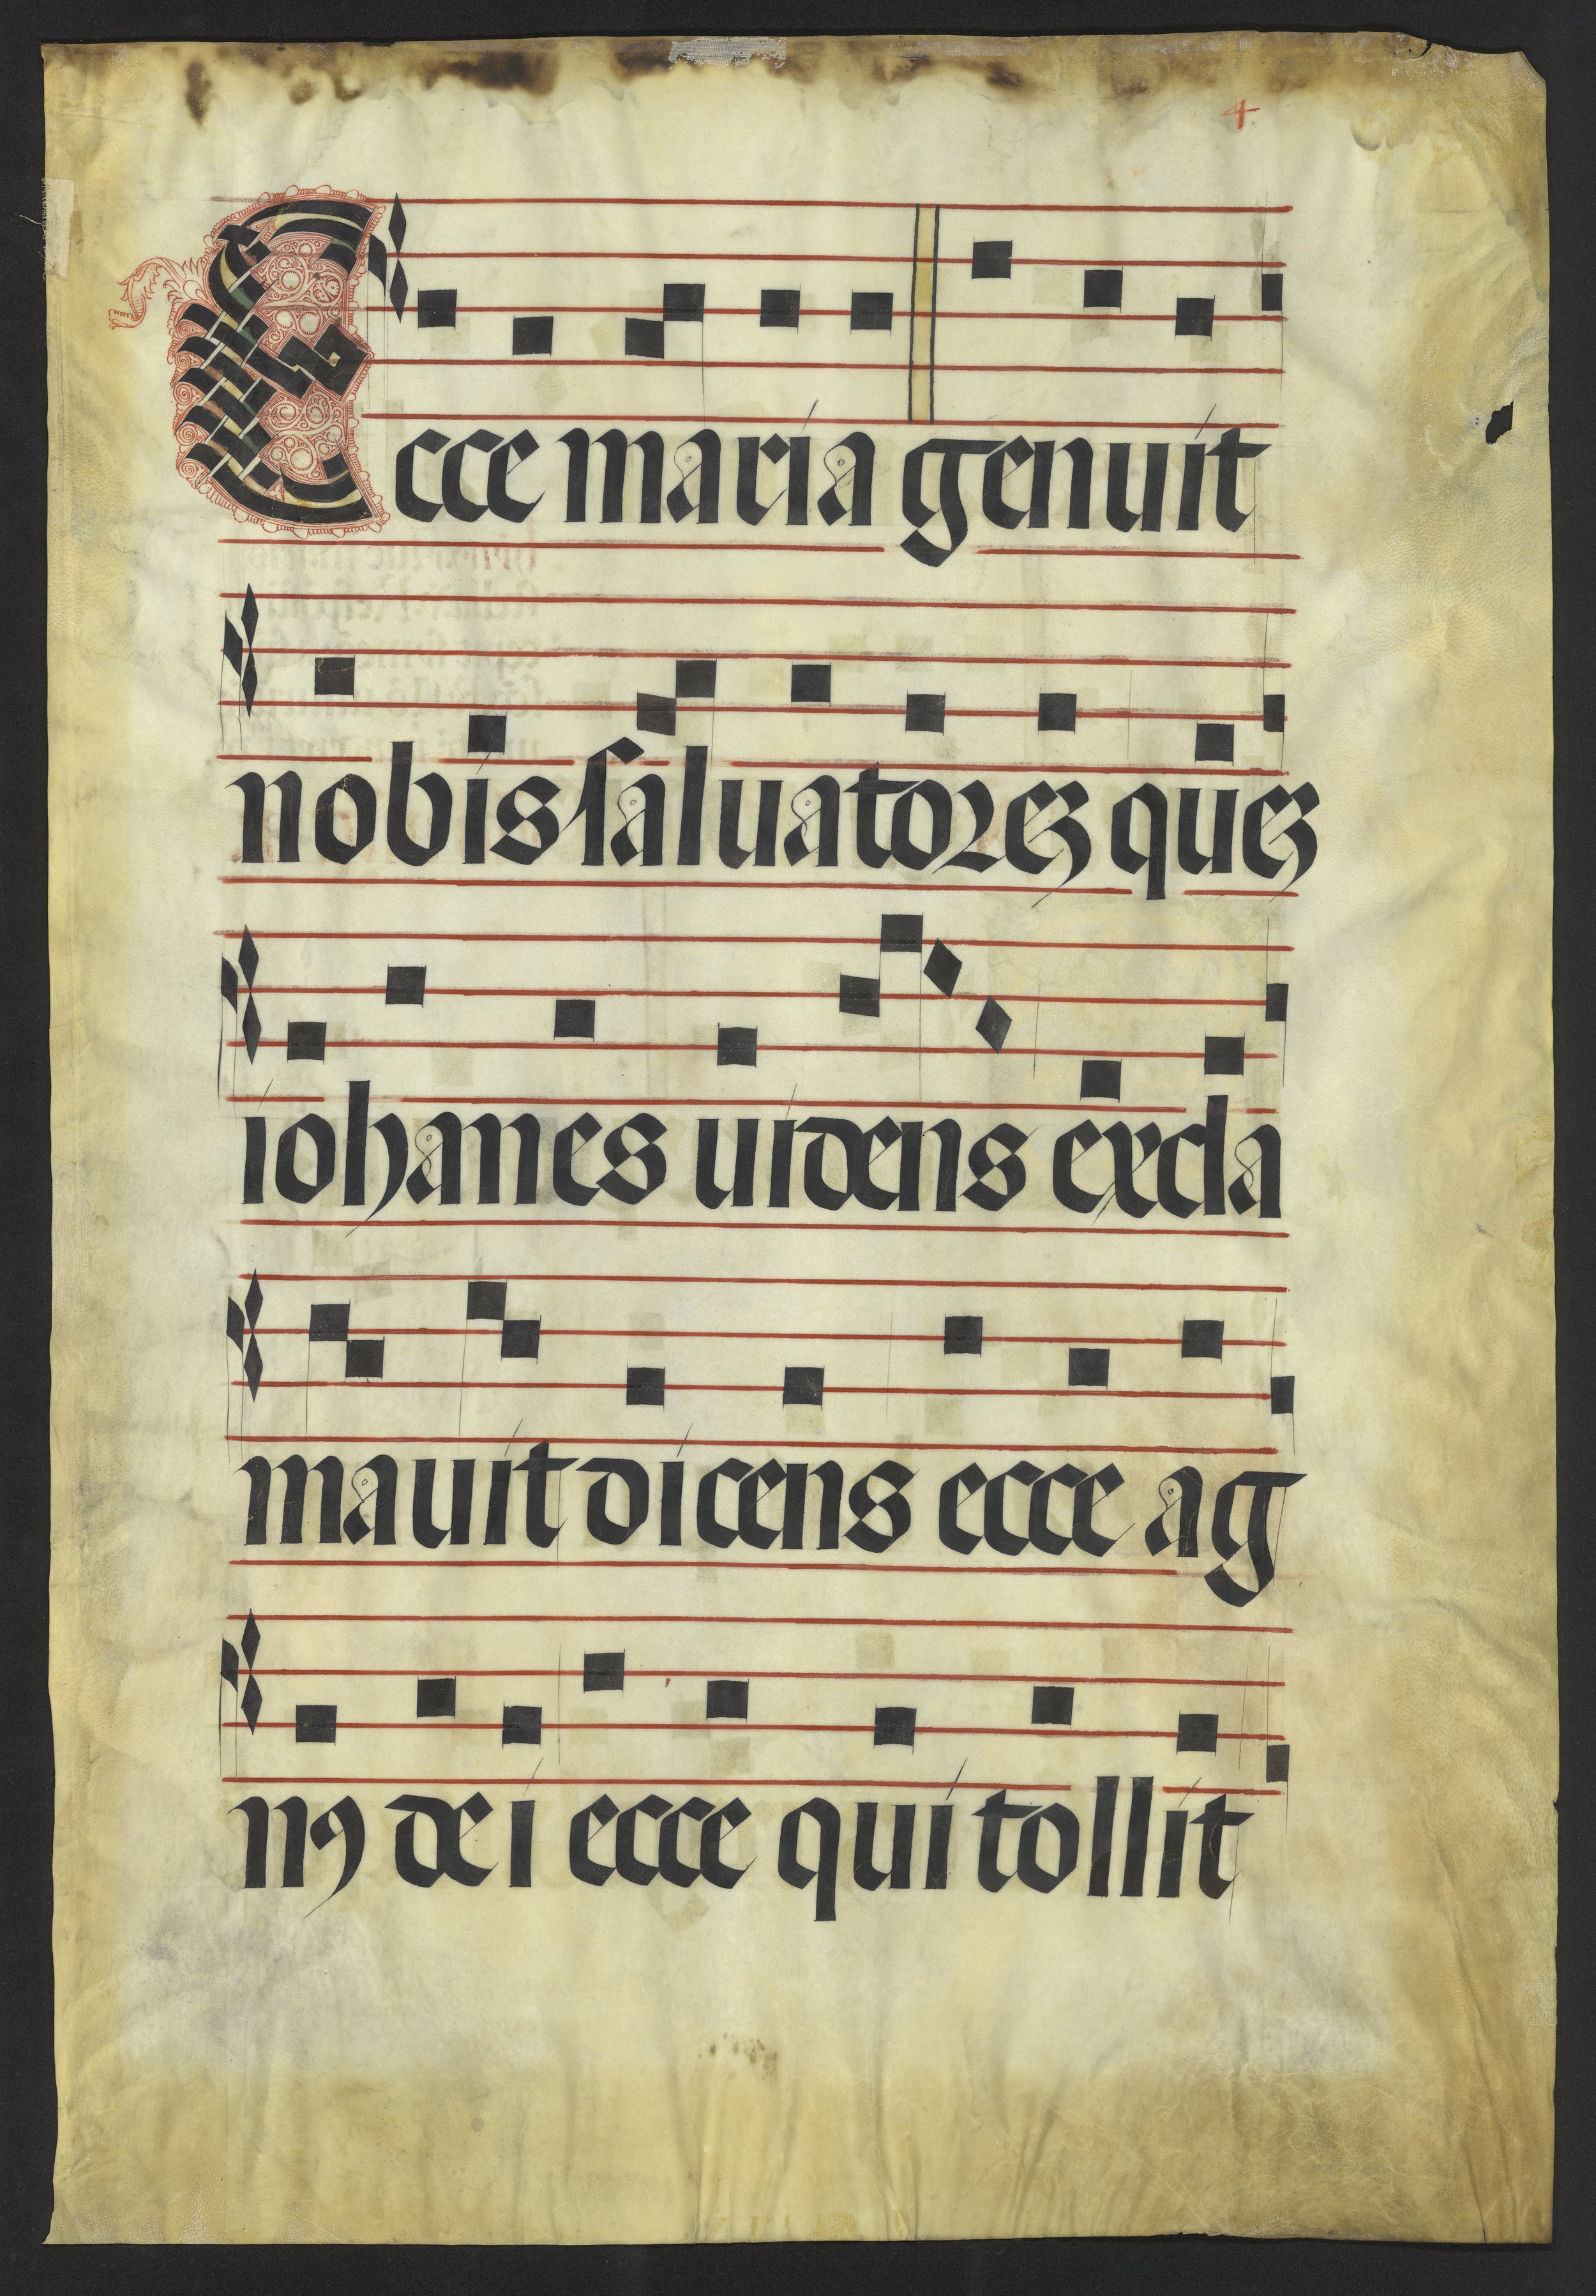 4
Ecce maria genuit
nobis ſaluatoreʒ queʒ
iohannes uidens excla
mauit dicens ecce ag
nꝯ dei ecce qui tollit